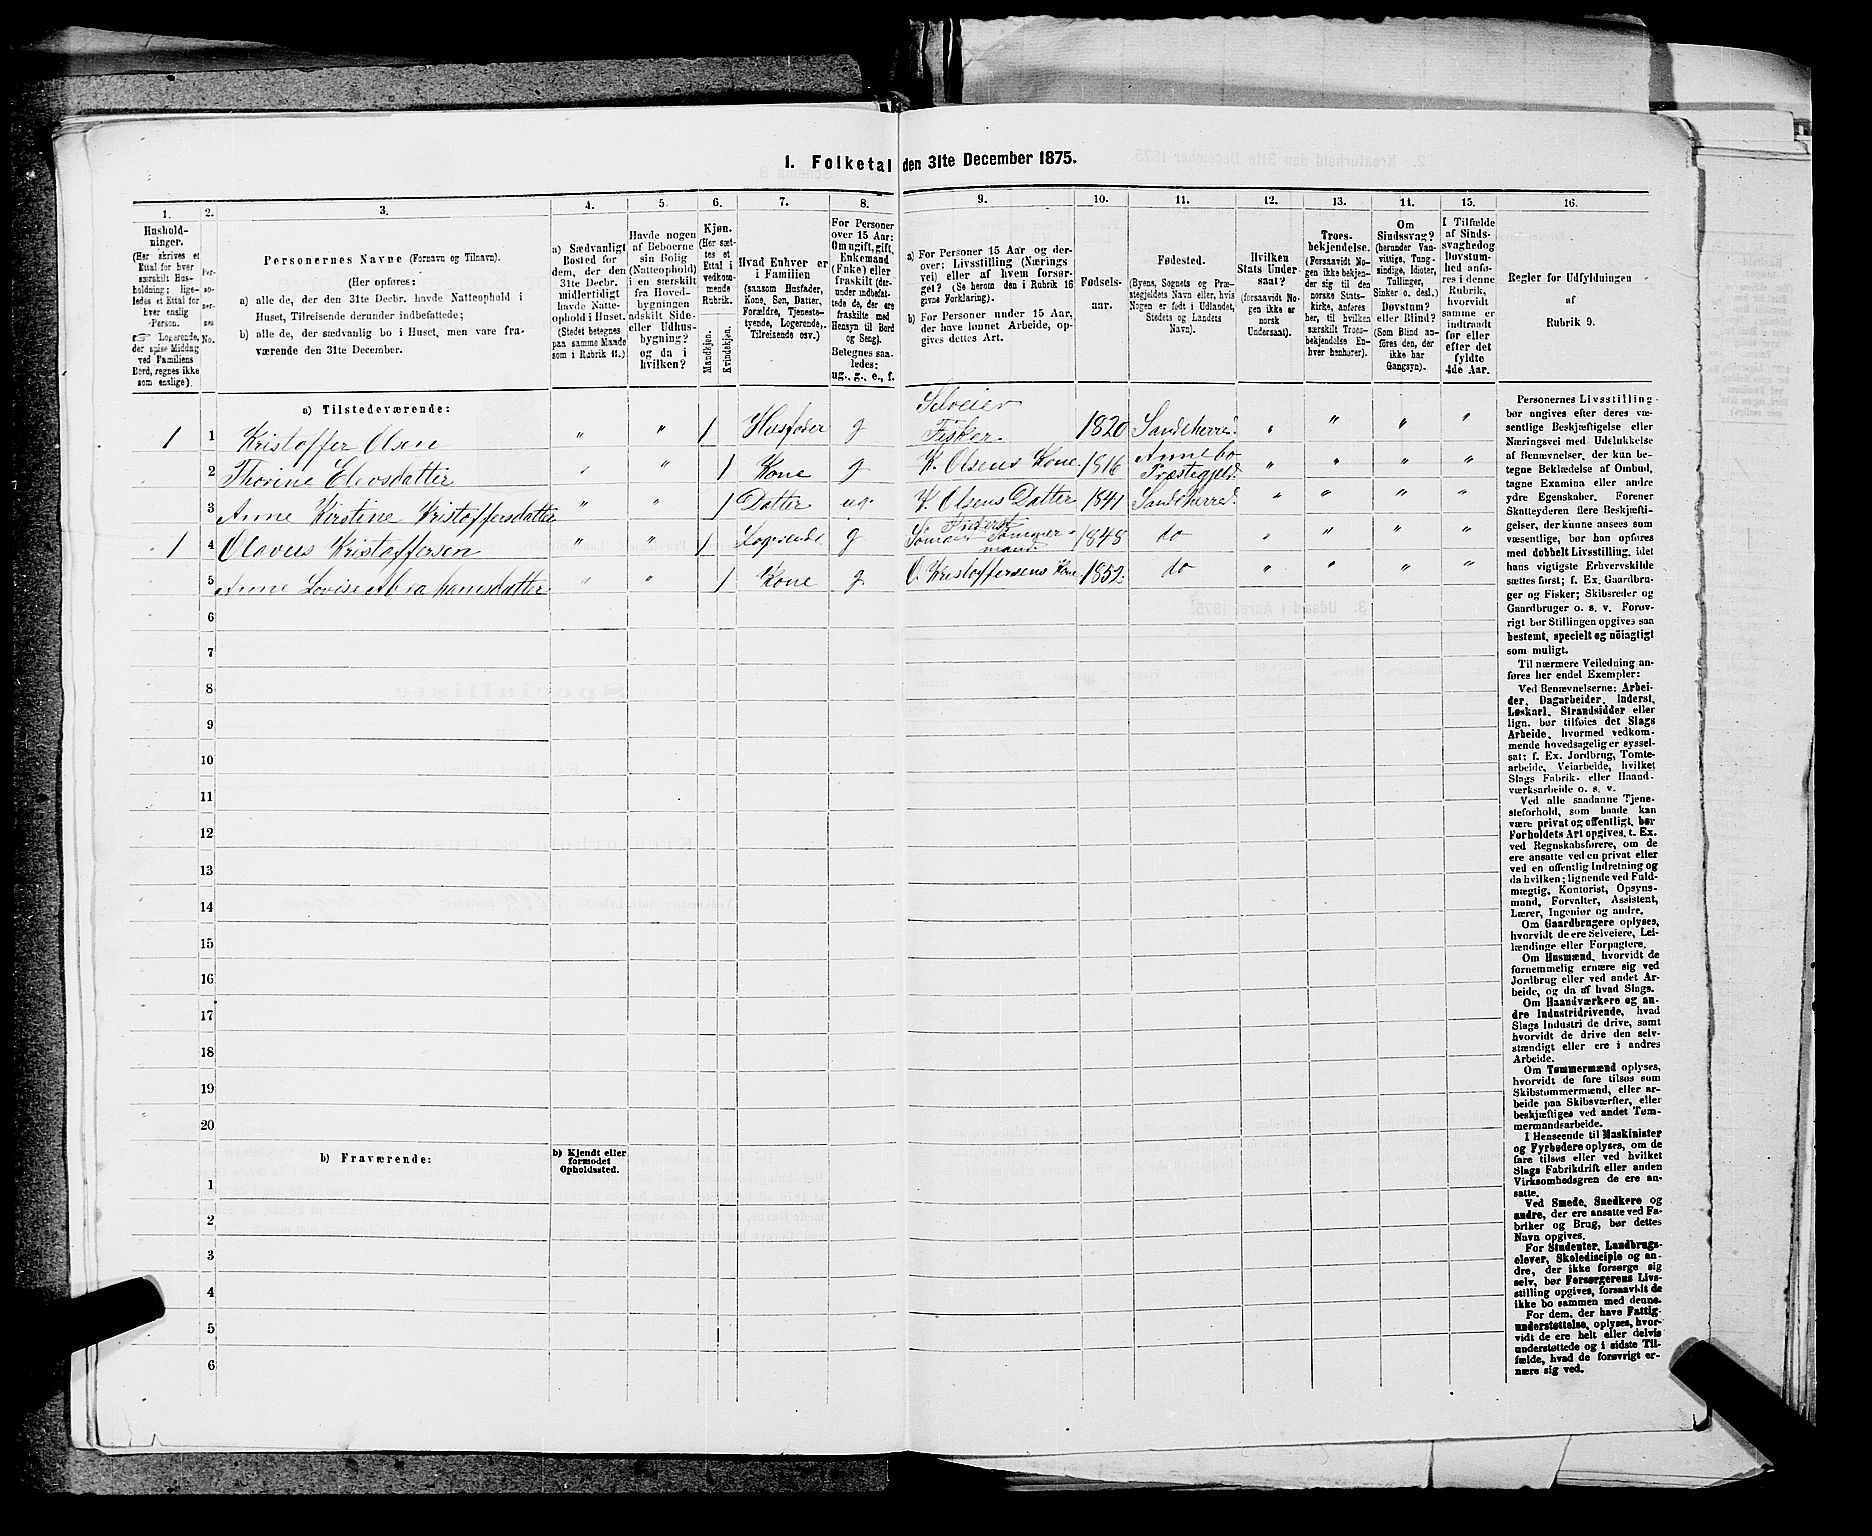 1. Folketal den 31te December 1875.
1.
2.
3.
4.
5.
6.
7.
8.
9.
10.
11.
12.
13.
14.
15.
16.
Hushold-
ninger.
(Her skrives et
Ettal for hver
særskilt Hus-
holdning; lige-
ledes et Ettal for
hver enslig
Person.
Logerende,
der spise Middag
ved Familiens
Bord, regnes ikke
som enslige).
Per-
so-
ner-
nes
No.
Personernes Navne (Fornavn og Tilnavn).
(Her opføres:
a) alle de, der den 31te Decbr. havde Natteophold i
Huset, Tilreisende derunder indbefattede;
b) alle de, der sædvanlig bo i Huset, men vare fra-
værende den 31te December.
a) Sædvanligt
Bosted for
dem, der den
31te Decbr.
midlertidigt
havde Natte-
ophold i Huset.
(Stedet betegnes
paa samme Maade
som i Rubrik 11.)
Havde nogen
af Beboerne
sin Bolig
(Natteophold)
i en særskilt
fra Hoved-
bygningen
adskilt Side-
eller Udhus-
bygning?
og da i
hvilken?
Kjøn.
(Her sæt-
tes et
Ettal i
vedkom-
mende
Rubrik.
Mandkjøn.
Kvindekjøn.
Hvad Enhver er
i Familien
(saasom Husfader,
Kone, Søn, Datter,
Forældre, Tjeneste-
tyende, Logerende,
Tilreisende osv.)
For Personer
over 15 Aar:
Om ugift, gift,
Enkemand
(Enke) eller
fraskilt (der-
under indbefat-
tede de, der ere
fraskilte med
Hensyn til Bord
og Seng).
Betegnes saa-
ledes:
ug., g., e., f.
a) For Personer 15 Aar og der-
over: Livsstilling (Nærings
vei) eller af hvem forsør-
get? (Se herom den i Rubrik 16
givne Forklaring).
b) For Personer under 15 Aar,
der have lønnet Arbeide, op-
gives dettes Art.
Fødsels-
aar.
Fødested.
(Byens, Sognets og Præ-
stegjeldets Navn eller, hvis
Nogen er født i Udlandet,
Stedets og Landets
Navn).
Hvilken
Stats Under
saat?
(forsaavidt No-
gen ikke er
norsk
Undersaat).
Troes-
bekjendelse.
(Forsaavidt Nogen
ikke bekjen-
der sig til den
norske Stats-
kirke, anføres
her, til hvilken
særskilt Troes-
bekjendelse En-
hver henhører).
Om
Sindssvag?
(herunder Van-
vittige, Tung-
sindige, Idioter,
Tullinger,
Sinker o. desl.)
Døvstum?
eller Blind?
(Som Blind an-
føres den, der
ikke har
Gangsyn).
I Tilfælde
af Sinds-
svaghed og
Døvstum-
hed anfø-
res i denne
Rubrik,
hvorvidt
samme er
indtraadt
før eller
efter det
fyldte
4de Aar.
Regler for Udfyldningen
af
Rubrik 9.
a) Tilstedeværende:
1 1 Kristoffer Olsen " " 1 Husfader g Selveier Fisker 1820 Sandeherred " " " "
2 Thorine Elevsdatter " " 1 Kone g K. Olsens Kone 1816 Annebo Præstegjeld " " " "
3 Anne Kirstine Kristoffersdatter " " 1 Datter ug K. Olsens Datter 1841 Sandeherred " " " "
1 4 Olavus Kristoffersen " " 1 Logerende g Inderst Tømmermand 1848 do " " " "
5 Anne Lovise Abrahamsdatter " " 1 Kone g O. Kristoffersens Kone 1852 do " " " "
6
7
8
9
10
11
12
13
14
15
16
17
18
19
20
b) Fraværende:
b) Kjendt eller
formodet
Opholdssted.
1
2
3
4
5
6
Personernes Livsstilling
bør angives efter deres væ-
sentlige Beskjæftigelse eller
Næringsvei med Udelukkelse
af Benævnelser, der kun be-
tegne Beklædelse af Ombud,
tagne Examina eller andre
ydre Egenskaber. Forener
Skatteyderen flere Beskjæfti-
gelser, der kunne ansees som
væsentlige, bør han opføres
med dobbelt Livsstilling, idet
hans vigtigste Erhvervskilde
sættes først; f. Ex. Gaardbru-
ger og Fisker; Skibsreder og
Gaardbruger o. s. v. Forøv-
rigt bør Stillingen opgives saa
bestemt, specielt og nøiagtigt
som muligt.
Til nærmere Veiledning an-
føres her endel Exempler:
Ved Benævnelserne: Arbei-
der, Dagarbeider, Inderst,
Løskarl, Strandsidder eller
lign. bør tilføies det Slags
Arbeide, hvormed vedkom-
mende hovedsagelig er syssel-
sat; f. Ex. Jordbrug, Tomte-
arbeide, Veiarbeide, hvilket
Slags Fabrik- eller Haand-
værksarbeide o. s. v.
Ved alle saadanne Tjene-
steforhold, som baade kan
være privat og offentligt, bør
Forholdets Art opgives, t. Ex.
ved Regnskabsførere, om de
ere ansatte ved en privat eller
ved en offentlig Indretning og
da hvilken; lignende ved Fuld-
mægtig, Kontorist, Opsyns-
mand, Forvalter, Assistent,
Lærer, Ingeniør og andre.
Om Gaardbrugere oplyses,
hvorvidt de ere Selveiere, Lei-
lændinge eller Forpagtere.
Om Husmænd, hvorvidt de
fornemmelig ernære sig ved
Jordbrug eller ved andet Ar-
beide, og da af hvad Slags.
Om Haandværkere og an-
dre Industridrivende, hvad
Slags Industri de drive, samt
hvorvidt de drive den selv-
stændigt eller ere i andres
Arbeide.
Om Tømmermænd oplyses,
hvorvidt de fare tilsøs som
Skibstømmermænd, eller ar-
beide paa Skibsværfter, eller
beskjæftiges ved andet Tøm-
mermandsarbeide.
I Henseende til Maskinister
og Fyrbødere oplyses, om de
fare tilsøs eller ved hvilket
Slags Fabrikdrift eller anden
Virksomhedsgren de ere an-
satte.
Ved Smede, Snedkere og
andre, der ere ansatte ved Fa-
briker og Brug, bør dettes
Navn opgives.
For Studenter, Landbrugs-
elever, Skoledisciple og an-
dre, der ikke forsørge sig
selv, bør Forsørgerens Livs-
stilling opgives, forsaavidt de
ikke bo sammen med denne.
For dem, der have Fattig-
understøttelse, oplyses, hvor-
vidt de ere helt eller delvis
understøttede og i sidste Til-
fælde, hvad de forøvrigt er-
nære sig ved.